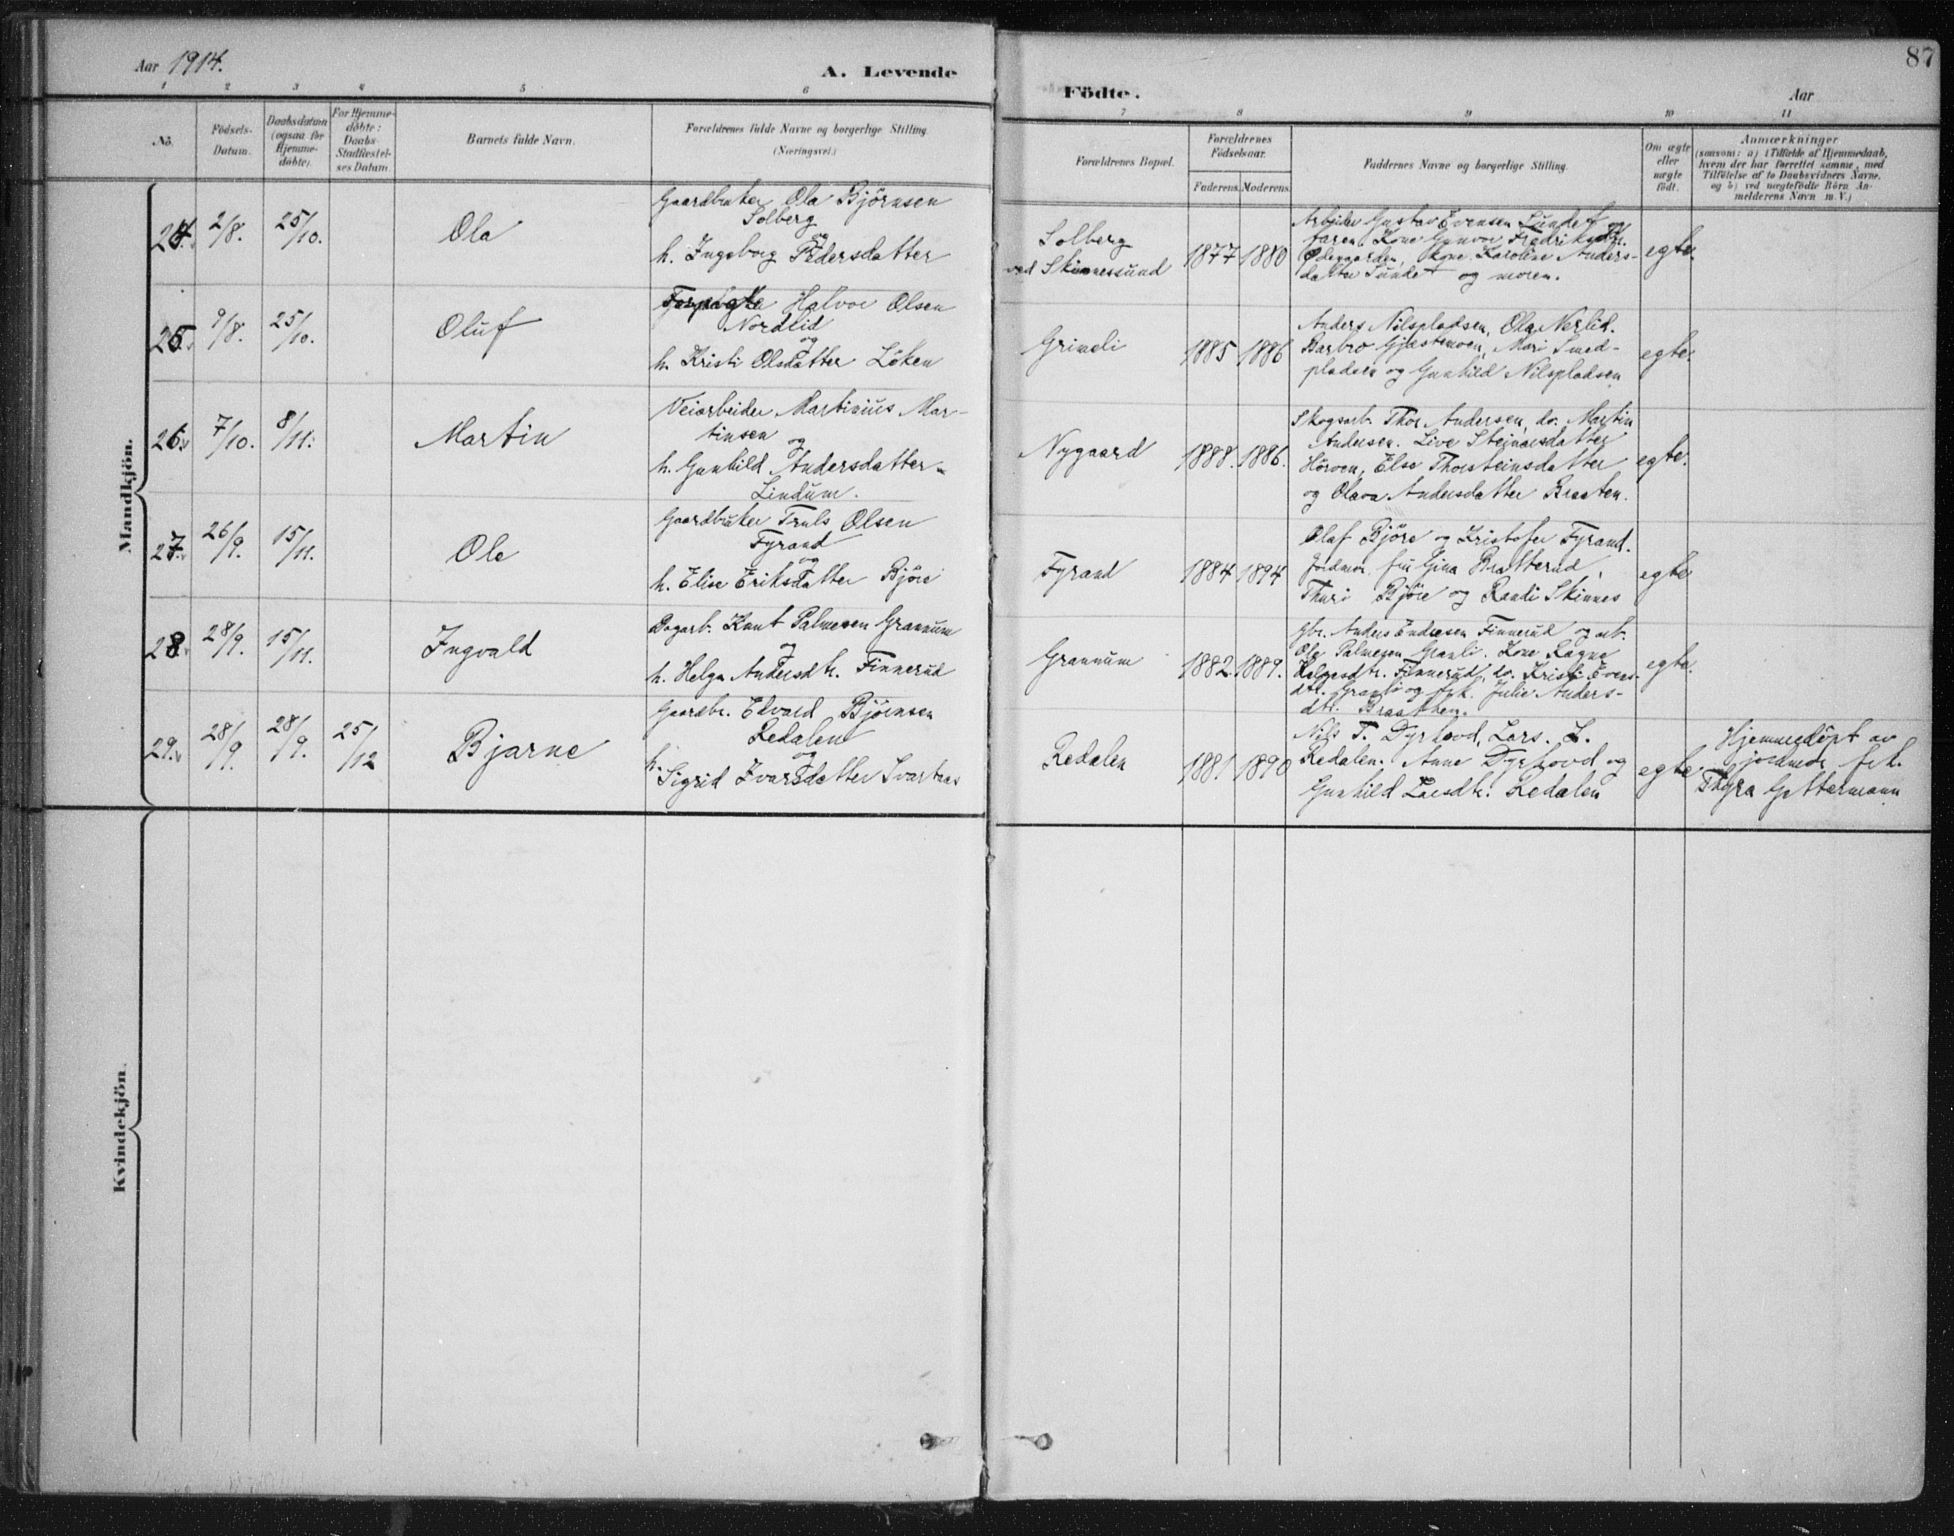 Aar 1914.
A. Levende
Födte.
Aar
87
1 2 3 4 5 6 7 8 9 10 11
No.
Födsels-
Datum.
Daabsdatum
(ogsaa for
Hjemme-
döbte).
For Hjemme-
döbte:
Daabs-
Stadfæstel-
ses Datum.
Barnets fulde Navn.
Forældrenes fulde Navne og borgerlige Stilling.
(Næringsvei.)
Forældrenes Bopæl.
Forældrenes
Födselsaar.
Faderens. Moderens.
Faddernes Navne og borgerlige Stilling.
Om ægte
eller
uægte
födt.
Anmærkninger
(saasom: a) i Tilfælde af Hjemmedaab,
hvem der har forrettet samme, med
Tilföielse af to Daabsvidners Navne,
og b) ved uægtefödte Börn An-
melderens Navn m. V.)
Mandkjön.
24. 2/8. 25/10. Ola
Gaardbruker Ola Björnsen
Solberg
og
h. Ingeborg Pedersdatter
Solberg
ved Skinnessund
1877 1880
Arbeider Gustav Evensen Sundet og
faren, Kone Gunvor Fredriksdtr.
Ødegaarden, Kone Karoline Anders-
datter Sundet og moren.
egte.
25. 9/8. 25/10. Oluf
Halvor Olsen
Nordlid
og
h. Kristi Olsdatter Løken
Grimeli
1885 1886
Anders Nilspladsen, Ola Nerlid.
Barbro Gjæstemoen, Mari Smed-
pladsen og Gunhild Nilspladsen
egte.
26. 7/10. 8/11. Martin
Veiarbeider Martinius Mar-
tinsen
og
h. Gunhild Andersdatter
Lindum.
Nygaard
1888. 1886.
Skogsarb. Thor Andersen, do. Martin
Andersen. Live Steinarsdatter
Hörven, Else Thorsteinsdatter
og Olava Andersdatter Braaten.
egte.
27. 26/9. 15/11. Ole
Gaardbruker Truls Olsen
Fyrand
og
h. Elise Eriksdatter Björe
Fyrand
1884 1894
Olaf Björe og Kristofer Fyrand.
Jordmor fru Gina Bratterud,
Thuri Björe og Randi Skinnes
egte
28. 28/9. 15/11. Ingvald
Dagarb. Knut Palmesen Grannum
og
h. Helga Andersdtr. Finnerud
Grannum
1882. 1889.
Gbr. Anders Endresen Finnerud og arb.
Ole Palmesen Granli. Kone Ragne
Helgesdtr. Finnerud, do. Kristi Evens-
dtr. og frk. Julie Anders-
dtr. Braathen.
egte.
29. 28/9. 28/9. 25/12 Bjarne
Gaardbr. Edvard Björnsen
Redalen
og
h. Sigrid Ivarsdatter Svartaas
Redalen
1881 1890
Nils T. Dyrhovd, Lars. L.
Redalen. Anne Dyrhovd og
Gunhild Larsdtr. Redalen
egte
Hjemmedöpt av
jordmor frk.
Thyra Gettermann
Kvindekjön.